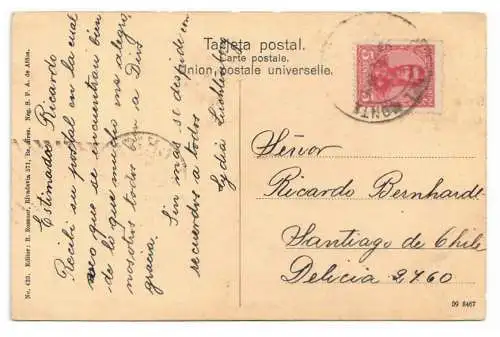 Tarjeta postal.
Carte postale.
Union postale universelle.
Estimado Ricardo
Recibi su postal en la cual
veo que se encuentran bien
de lo que mucho me alegro,
nosotros todos bien a Dios
gracia.
Sin mas se despide con
recuerdos a todos
Lydia
Señor
Ricardo Bernhardt
Santiago de Chile
Delicia 2460
No. 425. Editor: R. Rosauer, Rivadavia 571, Bs. Aires. Neg. S. F. A. de Afnos.
09 8467